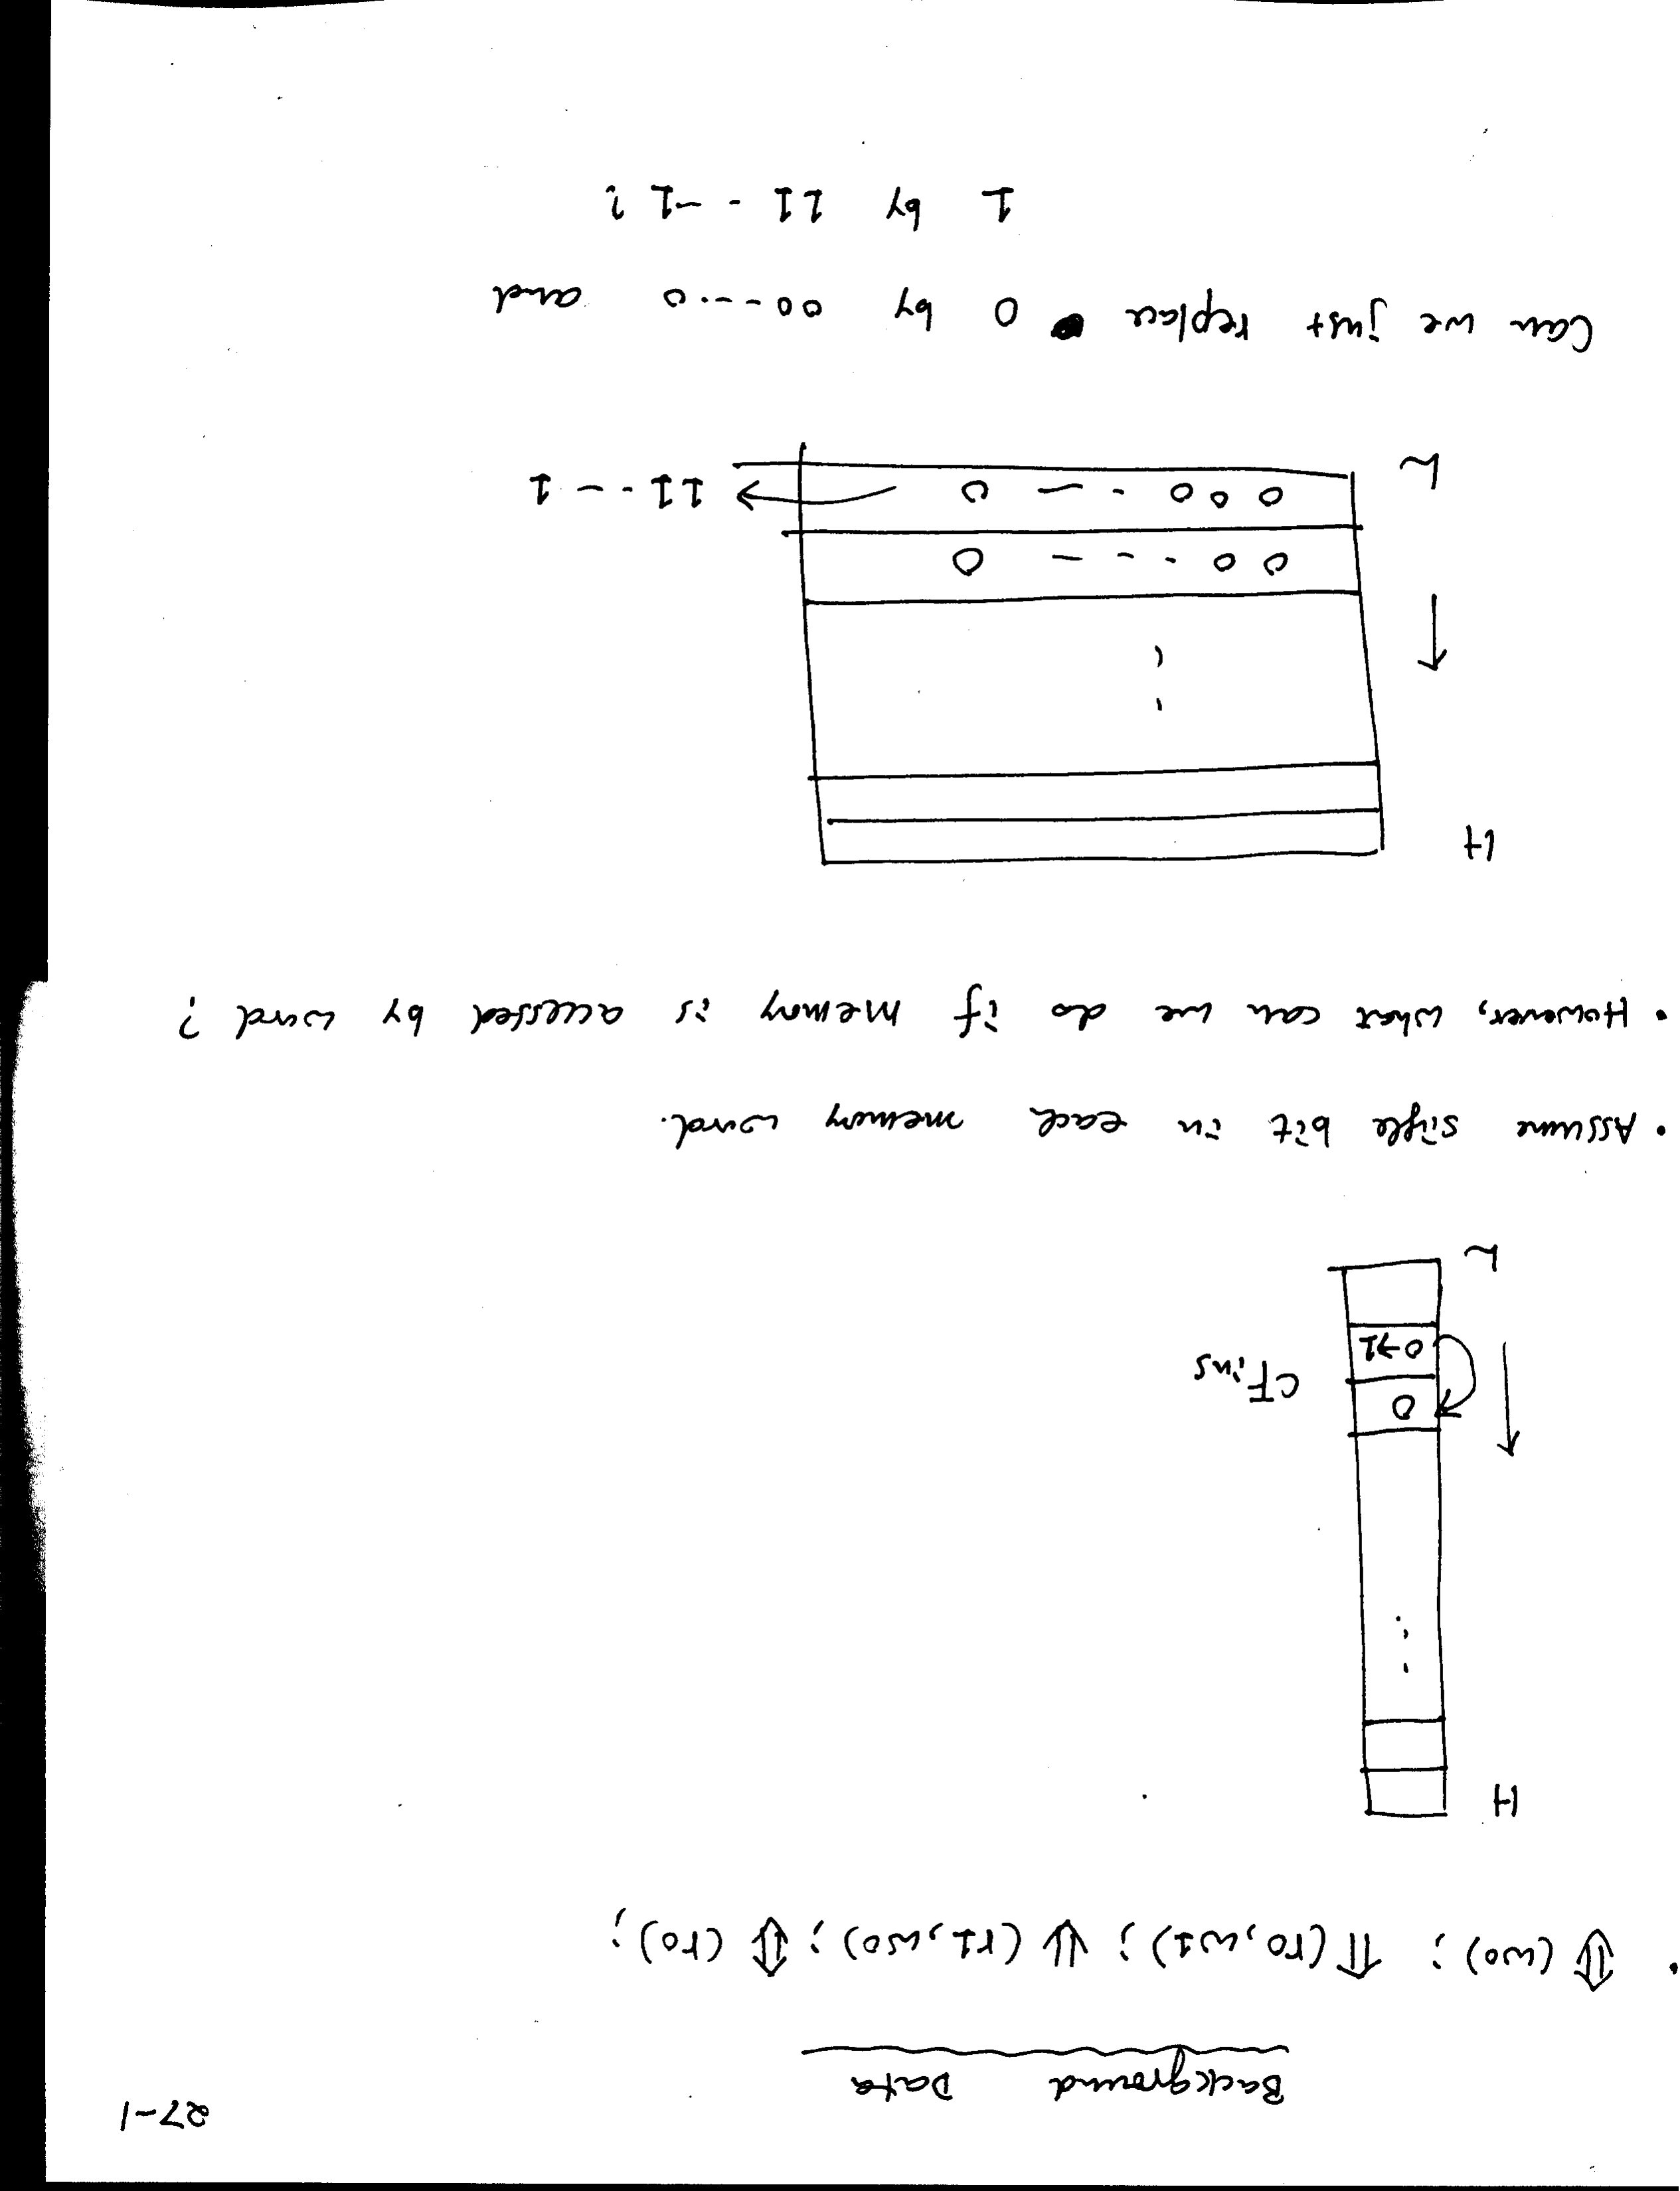 27-1
Background Data
• ⇕ (w0); ⇑ (r0, w1); ⇓ (r1, w0); ⇕ (r0);
H
0
CFins
0→1
L
• Assume single bit in each memory word.
• However, what can we do if memory is accessed by word?
H
00 - - - 0
L 000 - - 0 → 11 - - 1
Can we just replace 0 by 00 - - - 0 and
1 by 11 - - 1?